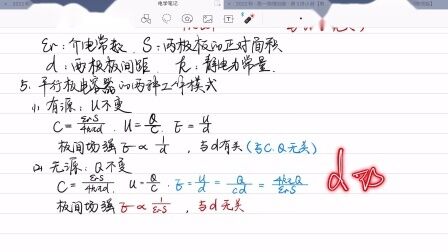 εr：介电常数 . S：两极板的正对面积
d：两极板间距 . k：静电力常量 .
5. 平行板电容器的两种工作模式
(1) 有源：U不变
C = εrS/4πkd . U = Q/C . E = U/d
板间场强 E ∝ 1/d , 与d有关 (与C.Q无关)
(2) 无源：Q不变
C = εrS/4πkd . U = Q/C . E = U/d = Q/Cd = 4πkQ/εrS
板间场强 E ∝ 1/εrS , 与d无关
d